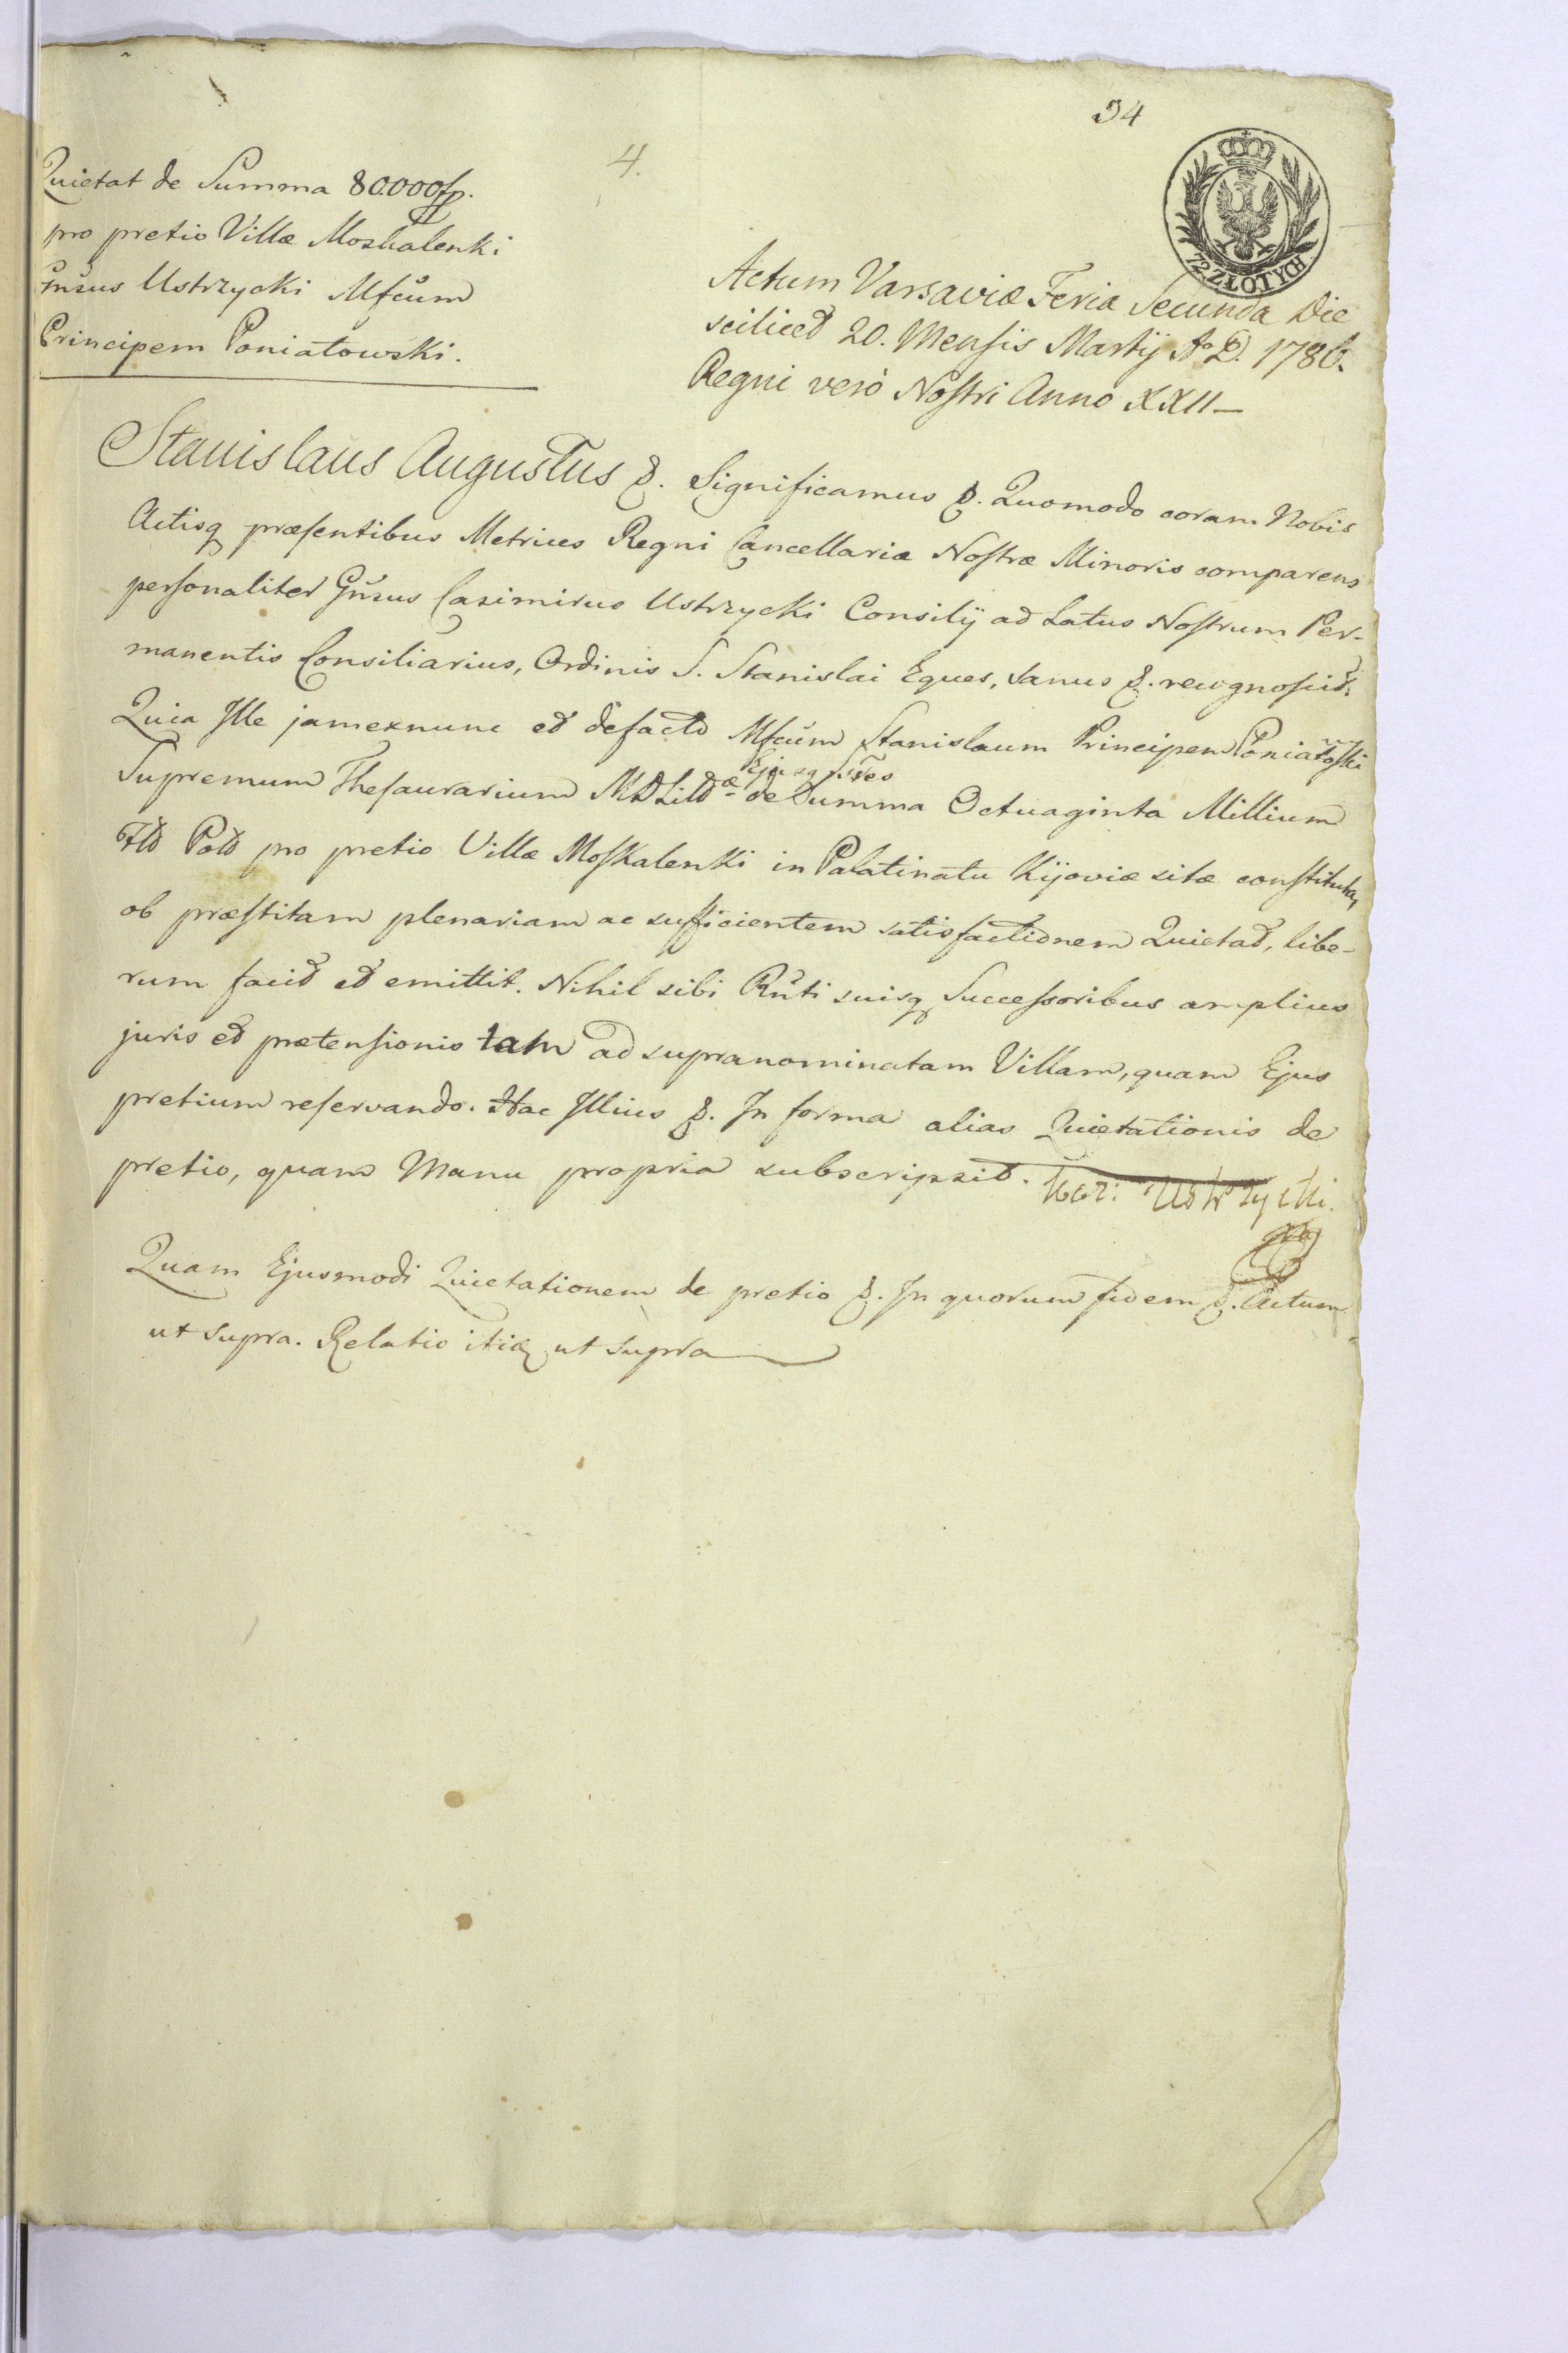 34
4.
72 ZŁOTYCH
Quietat de Summa 80.000 fp.
pro pretio Villæ Moskalenki
Gnsus Ustrzycki Mfcum
Principem Poniatowski.
Actum Varsaviæ Feria Secunda Die
scilicet 20. Mensis Martij Ao D. 1786.
Regni verò Nostri Anno XXII
Stanislaus Augustus &. Significamus &. Quomodo coram Nobis
Actisq præsentibus Metrices Regni Cancellariæ Nostræ Minoris comparens
personaliter Gnsus Casimirus Ustrzycki Consilij ad Latus Nostrum Per-
manentis Consiliarius, Ordinis S. Stanislai Eques, sanus &. recognoscit.
Quia Ille jamexnunc et defacto Mfcum Stanislaum Principem Poniatoski
Supremum Thesaurarium MDLittæ Ejusq de Summa Octuaginta Millium
Flo Polo pro pretio Villæ Moskalenki in Palatinatu Kijoviæ sitæ constituta,
ob præstitam plenariam ac sufficientem satisfactionem Quietat, libe-
rum facit et emittit. Nihil sibi Rnti suisq Successoribus amplius
juris et prætensionis tam ad supranominatam Villam, quam Ejus
pretium reservando. Hac Illius &. In forma alias Quietationis de
pretio, quam Manu propria subscripsit. Kaz: Ustrzycki.
Quam Ejusmodi Quietationem de pretio &. In quorum fidem &. Actum
ut supra. Relatio itiq ut supra